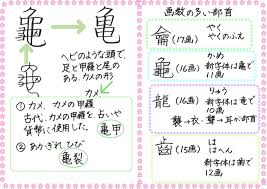 龜 → 亀
ヘビのような頭で、
足と甲羅と尾の
ある、カメの形
カメ
① カメ、カメの甲羅
古代、カメの甲羅を、占いや
貨幣として使用した。
亀甲
② あかぎれ、ひび
亀裂
画数の多い部首
龠 (17画) やく
やくのふえ
龜 (16画) かめ
新字体は亀で
11画
龍 (16画) りゅう
新字体は竜で
10画
襲→衣、聾→耳が部首
齒 (15画) は
はへん
新字体は歯で
12画